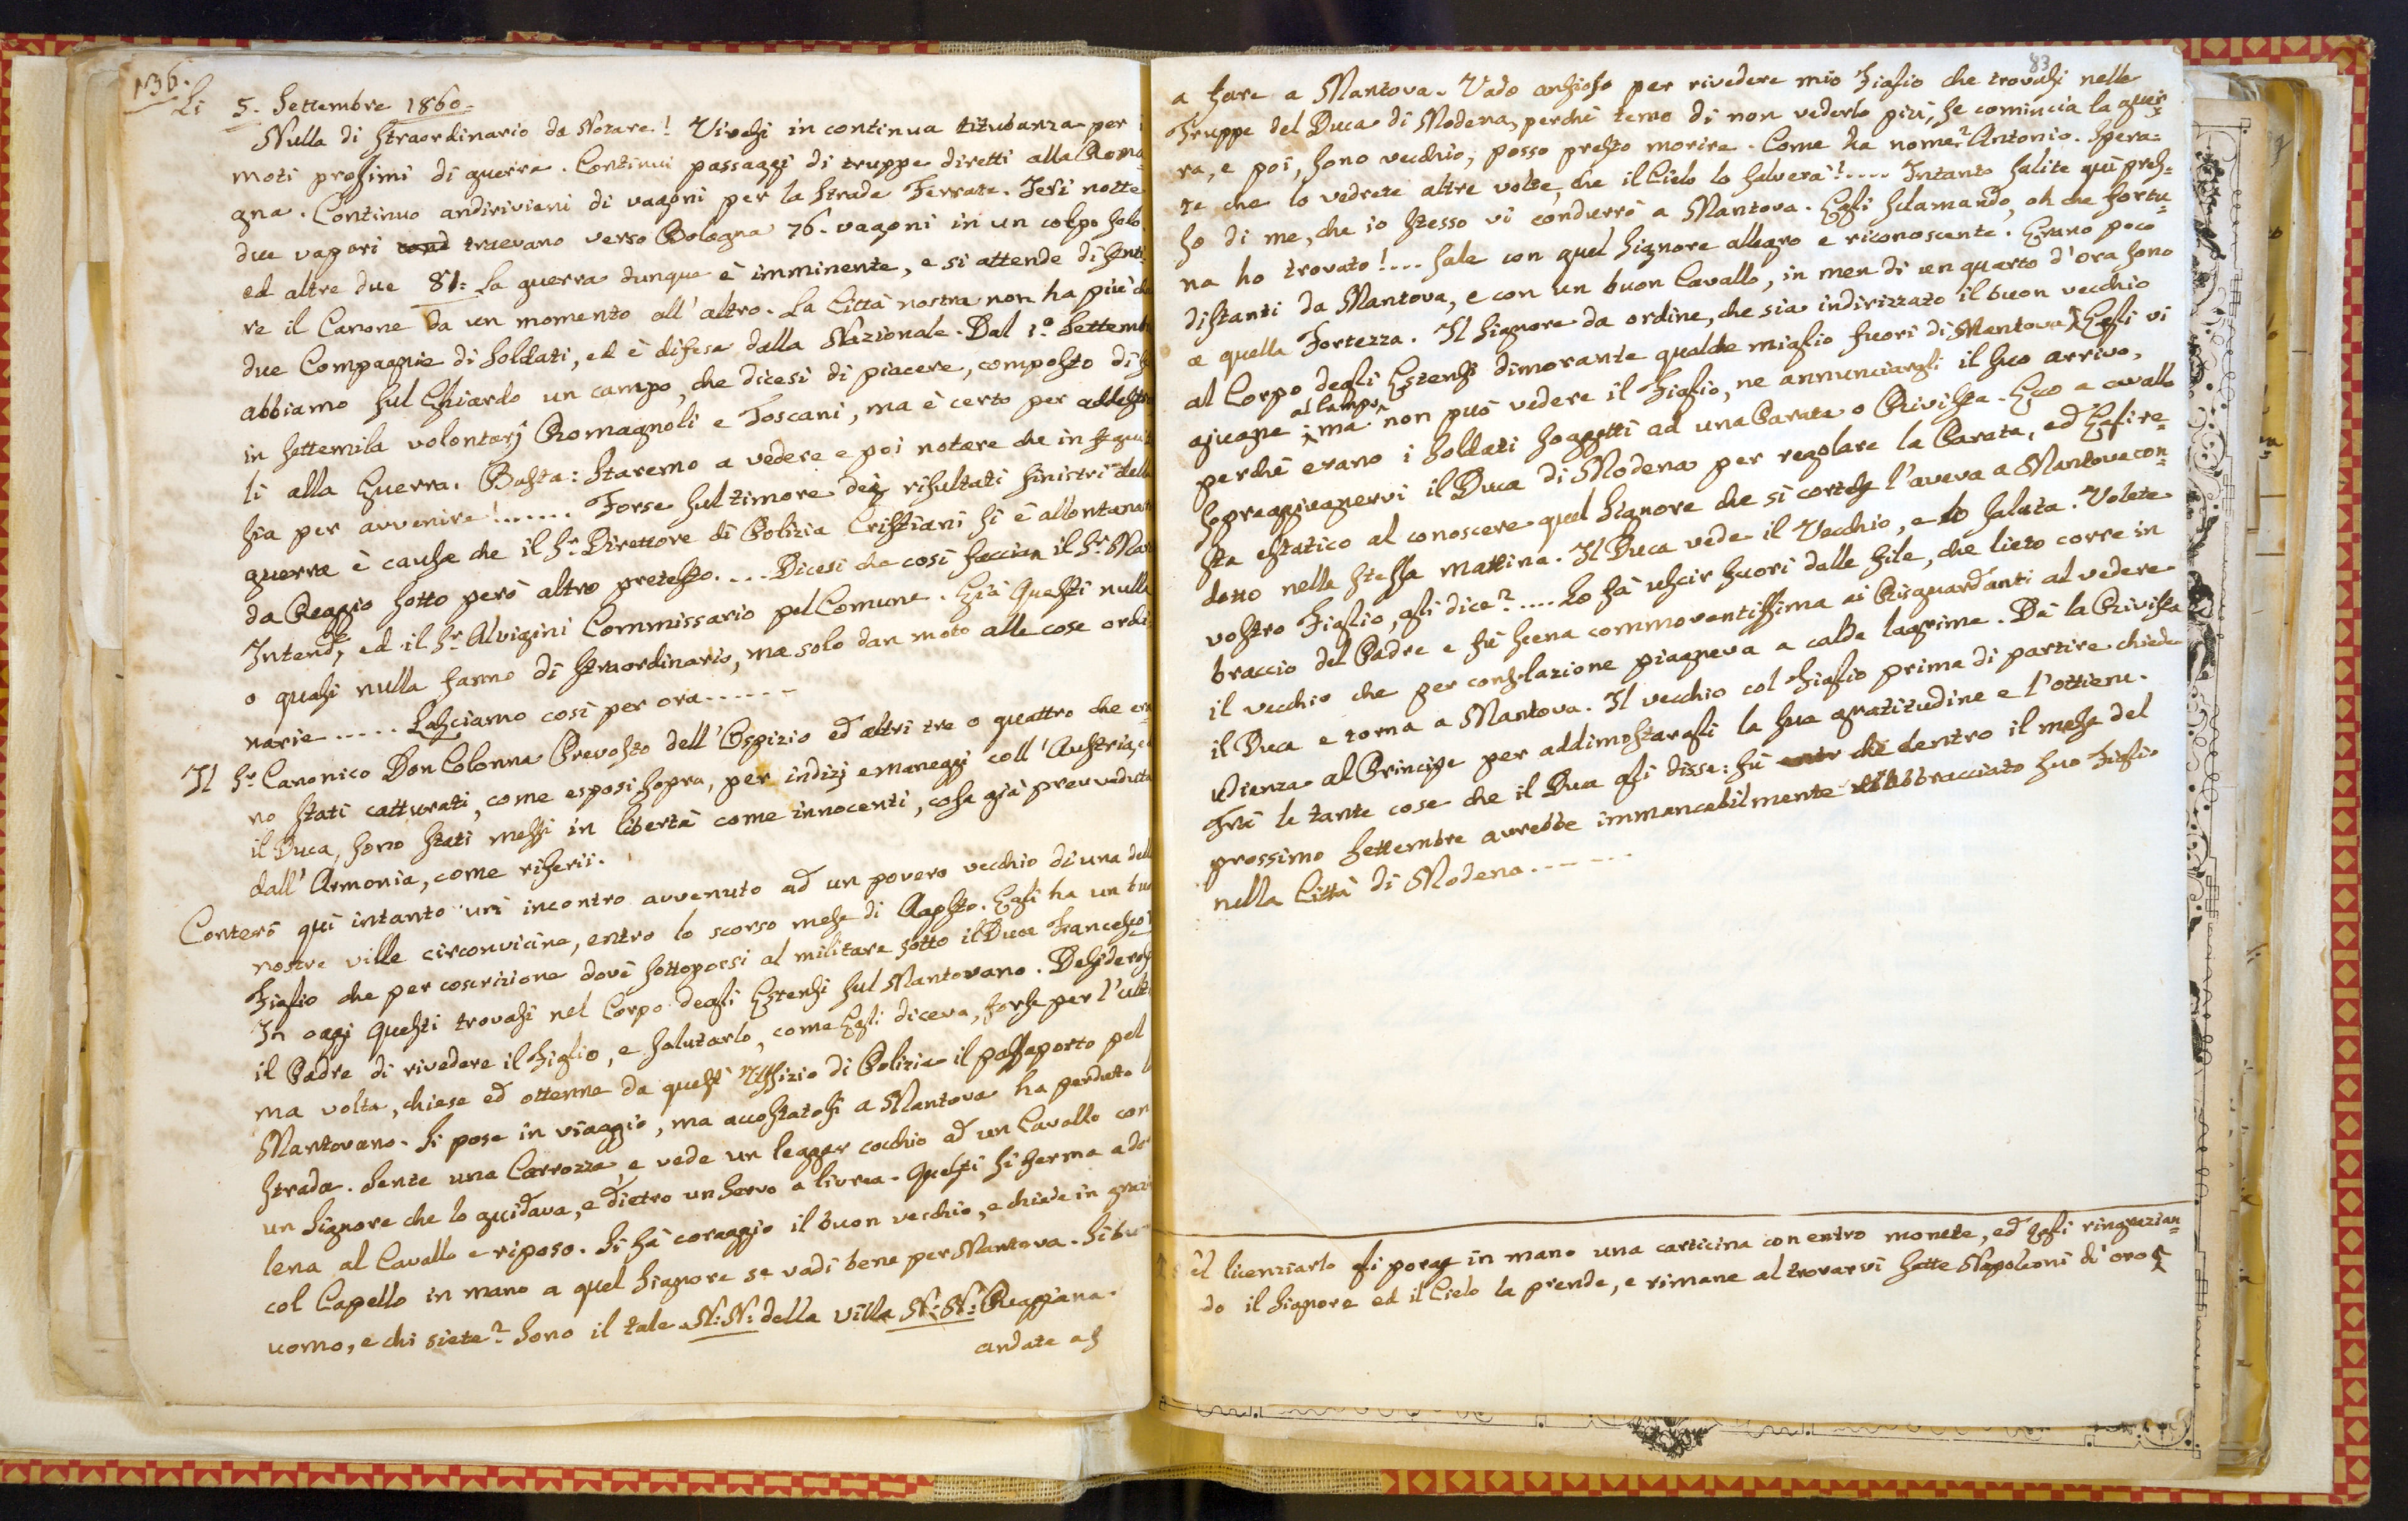 136.
Li 5. Settembre 1860=
Nulla di straordinario da Notare! Vivesi in continua titubanza per i
moti prossimi di guerra. Continui passaggi di truppe diretti alla Roma
gna. Continuo andirivieni di vagoni per la strada Ferrata. Jesi notte
due vapori traevano verso Bologna 76. vagoni in un colpo solo
ed altre due 81= La guerra dunque è imminente, e si attende di senti
re il Canone da un momento all'altro. La Città nostra non ha più che
due Compagnie di Soldati, ed è difesa dalla Nazionale. Dal 1.° Settemb
abbiamo sul Ghiardo un campo, che dicesi di piacere, composto di
in settemila volontarj Romagnoli e Toscani, ma è certo per addestra
li alla Guerra. Basta: staremo a vedere e poi notare che in seguit
sia per avvenire!...... Forse sul timore dei risultati sinistri della
guerra è causa che il Sr. Direttore di Polizia Cristiani si è allontanat
da Reggio sotto però altro pretesto.... Dicesi che così faccian il Sr. Mar
Intendte, ed il Sr. Alvigini Commissario pel Comune. Già Questi nulla
o quasi nulla fanno di straordinario, ma solo dan moto alle cose ordi
narie..... Lasciamo così per ora......
Il Sr. Canonico Don Colonna Prevosto dell'Ospizio ed altri tre o quattro che era
no stati catturati, come esposi sopra, per indizj e maneggi coll'Austria, e
il Duca, sono stati messi in libertà come innocenti, cosa già preuveduta
dall'Armonia, come riferii.
Conterò qui intanto un incontro avvenuto ad un povero vecchio di una dell
nostre ville circonvicine, entro lo scorso mese di Agosto. Egli ha un suo
Figlio che per coscrizione dovè sottoporsi al militare sotto il Duca Francesco
In oggi Questi trovasi nel Corpo degli Estensi sul Mantovano. Desiderose
il Padre di rivedere il Figlio, e salutarlo, come Egli diceva, forse per l'ulti
ma volta, chiese ed ottenne da quest' Uffizio di Polizia il passaporto pel
Mantovano. Si pose in viaggio, ma accostatosi a Mantova ha perduto la
strada. Sente una Carrozza, e vede un legger cocchio ad un Cavallo con
un Signore che lo guidava, e dietro un servo a livrea. Questi si ferma a dar
lena al Cavallo e riposo. Si fà coraggio il buon vecchio, e chiede in grazi
col Capello in mano a quel Signore se vadi bene per Mantova. Sì bu
uomo, e chi siete? Sono il tale N:N: della villa N:N: Reggiana.
andate a f
83
a fare a Mantova. Vado ansioso per rivedere mio Figlio che trovasi nelle
Truppe del Duca di Modena, perchè temo di non vederlo più, se comincia la guer=
ra, e poi, sono vecchio, posso presto morire. Come ha nome? Antonio. Spera=
te che lo vedrete altre volte, che il Cielo lo salverà!.... Intanto salite quì pres=
so di me, che io stesso vi condurrò a Mantova. Egli sclamando, oh che fortu=
na ho trovato!... sale con quel Signore allegro e riconoscente. Erano poco
distanti da Mantova, e con un buon Cavallo, in men di un quarto d'ora sono
a quella Fortezza. Il Signore da ordine, che sia indirizzato il buon vecchio
al Corpo degli Estensi dimorante qualche miglio fuori di Mantova. Egli vi
al Campo
giugne; ma non può vedere il Figlio, ne annunciargli il suo arrivo,
perchè erano i Soldati soggetti ad una Parata o Rivista. Ecco a cavallo
sopraggiugnervi il Duca di Modena per regolare la Parata, ed Egli re=
sta estatico al conoscere quel Signore che sì cortese l'aveva a Mantova con=
dotto nella stessa mattina. Il Duca vede il Vecchio, e lo saluta. Volete
vostro Figlio, gli dice?.... Lo fà uscir fuori dalle file, che lieto corre in
braccio del Padre e fù scena commoventissima ai Risguardanti al vedere
il vecchio che per consolazione piagneva a calde lagrime. Dà la Rivista
il Duca e torna a Mantova. Il vecchio col Figlio prima di partire chiede
udienza al Principe per addimostrargli la sua gratitudine e l'ottiene.
Frà le tante cose che il Duca gli disse: fù che dentro il mese del
prossimo Settembre avrebbe immancabilmente abbracciato suo Figlio
nella Città di Modena......
el licenziarlo gli porge in mano una carticina con entro monete, ed Egli ringrazian=
do il Signore ed il Cielo la prende, e rimane al trovarvi sette Napoleoni d'oro